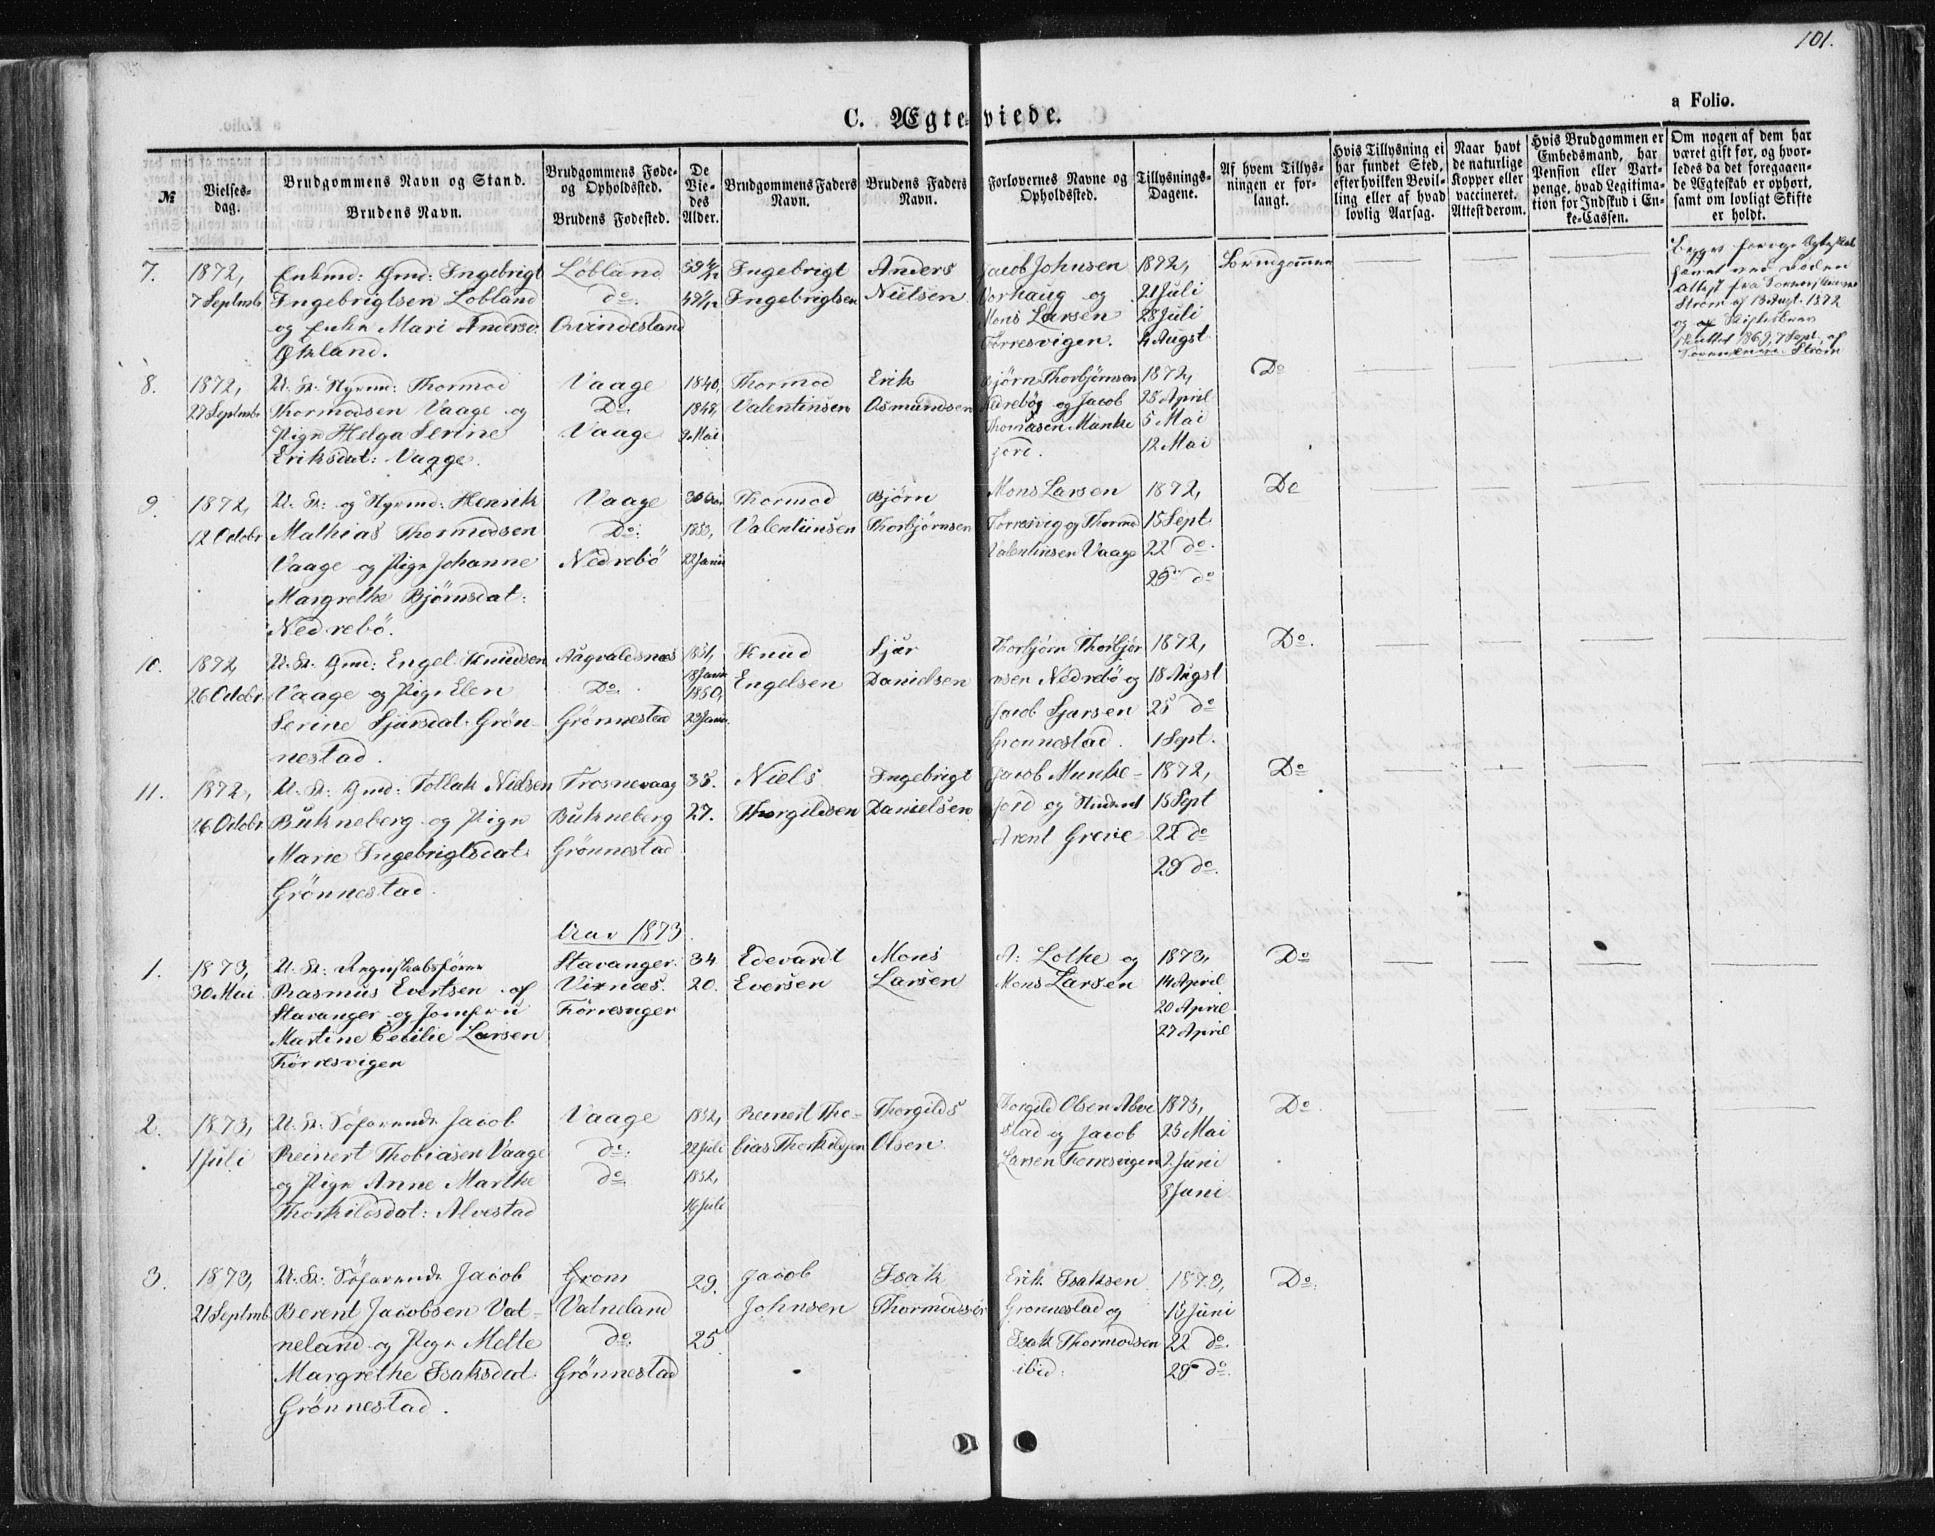 101.
a Folio.
C. Ægteviede.
№
Vielses-
dag.
Brudgommens Navn og Stand.
Brudens Navn.
Brudgommens Føde-
og Opholdssted.
Brudens Fødested.
De
Vie-
des
Alder.
Brudgommens Faders
Navn.
Brudens Faders
Navn.
Forlovernes Navne og
Opholdssted.
Tillysnings-
Dagene.
Af hvem Tillys-
ningen er for-
langt.
Hvis Tillysning ei
har fundet Sted,
efter hvilken Bevil-
ling eller af hvad
lovlig Aarsag.
Naar havt
de naturlige
Kopper eller
vaccineret.
Attest derom.
Hvis Brudgommen er
Embedsmand, har
Pension eller Vart-
penge, hvad Legitima-
tion for Indskud i En-
ke-Cassen.
Om nogen af dem har
været gift før, og hvor-
ledes da det foregaaen-
de Ægteskab er ophørt,
samt om lovligt Skifte
er holdt.
7.
1872,
7 Septmb
Enkmd: Gmd: Ingebrigt
Ingebrigtsen Lobland
og Enke Mari Andersd.
Økland.
Løbland
do.
Qvindesland
Ingebrigt
Ingebrigtsen
Anders
Nielsen
Jacob Johnsen
Vorhaug og
Mons Larsen
Førresvigen.
1872,
21 Juli
28 Juli
4 Augst.
Brudgommen
8.
1872,
27 Septmbr
U. St. Styrmd: Thormod
Thormodsen Vaage og
Pige Helga Serine
Eriksdat: Vaage.
Vaage
Do:
Vaage
1840,
1848,
2 Mai
Thormod
Valentinsen
Erik
Osmundsen
Bjørn Thorbjørnsen
Nedrebø og Jacob
Thomasen Munke
jord.
1872,
28 April
5 Mai
12 Mai
Do
9.
1872,
12 Octobr
U. St: og Styrmd: Henrik
Mathias Thormodsen
Vaage og Pige Johanne
Margrethe Bjørnsdat:
Nedrebö.
Vaage
Do:
Nedrebö
30 Aar
1853,
22 Janu
Thormod
Valentinsen
Bjørn
Thorbjørnsen
Mons Larsen
Førresvig og Thormod
Valentinsen Vaage
1872,
15 Sept
22 do.
29 do
Do
10.
1872
26 Octobr
U. St. Gmd: Engel Knudsen
Vaage og Pige Elen
Serine Sjursdat. Grön-
nestad.
Augvaldsnæs
Do.
Grönnestad
1851,
18 Janu
1850,
23 Janu.
Knud
Engelsen
Sjur
Danielsen
Thorbjørn Thorbjør
nsen Nedrebö og
Jacob Sjursen
Gronnestad.
1872,
18 Augst
25 do
1 Sept.
Do.
11.
1872,
26 Octobr
U. St: Gmd: Tollak Nielsen
Bukneberg og Pige
Marie Ingebrigtsdat.
Grönnestad.
Trosnevaag
Bukneberg
Grönnestad
35.
27.
Niels
Thorgildsen
Ingebrigt
Danielsen
Jacob Munke-
jord og Student
Arent Greve
1872,
15 Sept
22 do
29 do.
Do
Aar 1873.
1.
1873,
30 Mai
U. St: Regnskabsfører
Rasmus Evertsen af
Stavanger og Jomfru
Martine Cecilie Larsen
Förresvigen
Stavanger.
Viknæs.
34
20.
Edevardt
Eversen
Mons
Larsen
A: Lothe og
Mons Larsen
1873,
14 April
20 April
27 April
Do
2.
1873,
1 Juli
U. St: Söfarende Jacob
Reinert Thobiasen Vaage
og Pige Anne Marthe
Thorkildsdat: Alvestad
Vaage
do:
do
1852,
22 Juli
1852,
16 Juli
Reinert Tho-
bias Thorkildsen
Thorgilds
Olsen
Thorgild Olsen Alve
stad og Jacob
Larsen Førresvigen
1873,
25 Mai
2 Juni
8 Juni
Do.
3.
1873,
21 Septmb
U. St. Söfarende Jacob
Berent Jacobsen Vat-
neland og Pige Mette
Margrethe Isaksdat.
Grönnestad.
Vatneland
do:
Grönnestad
29.
25
Jacob
Johnsen
Isak
Thormodsen
Erik Isaksen
Gronnestad og
Isak Thormodsen
ibid.
1873,
15 Juni
22 do.
29 do.
Do.